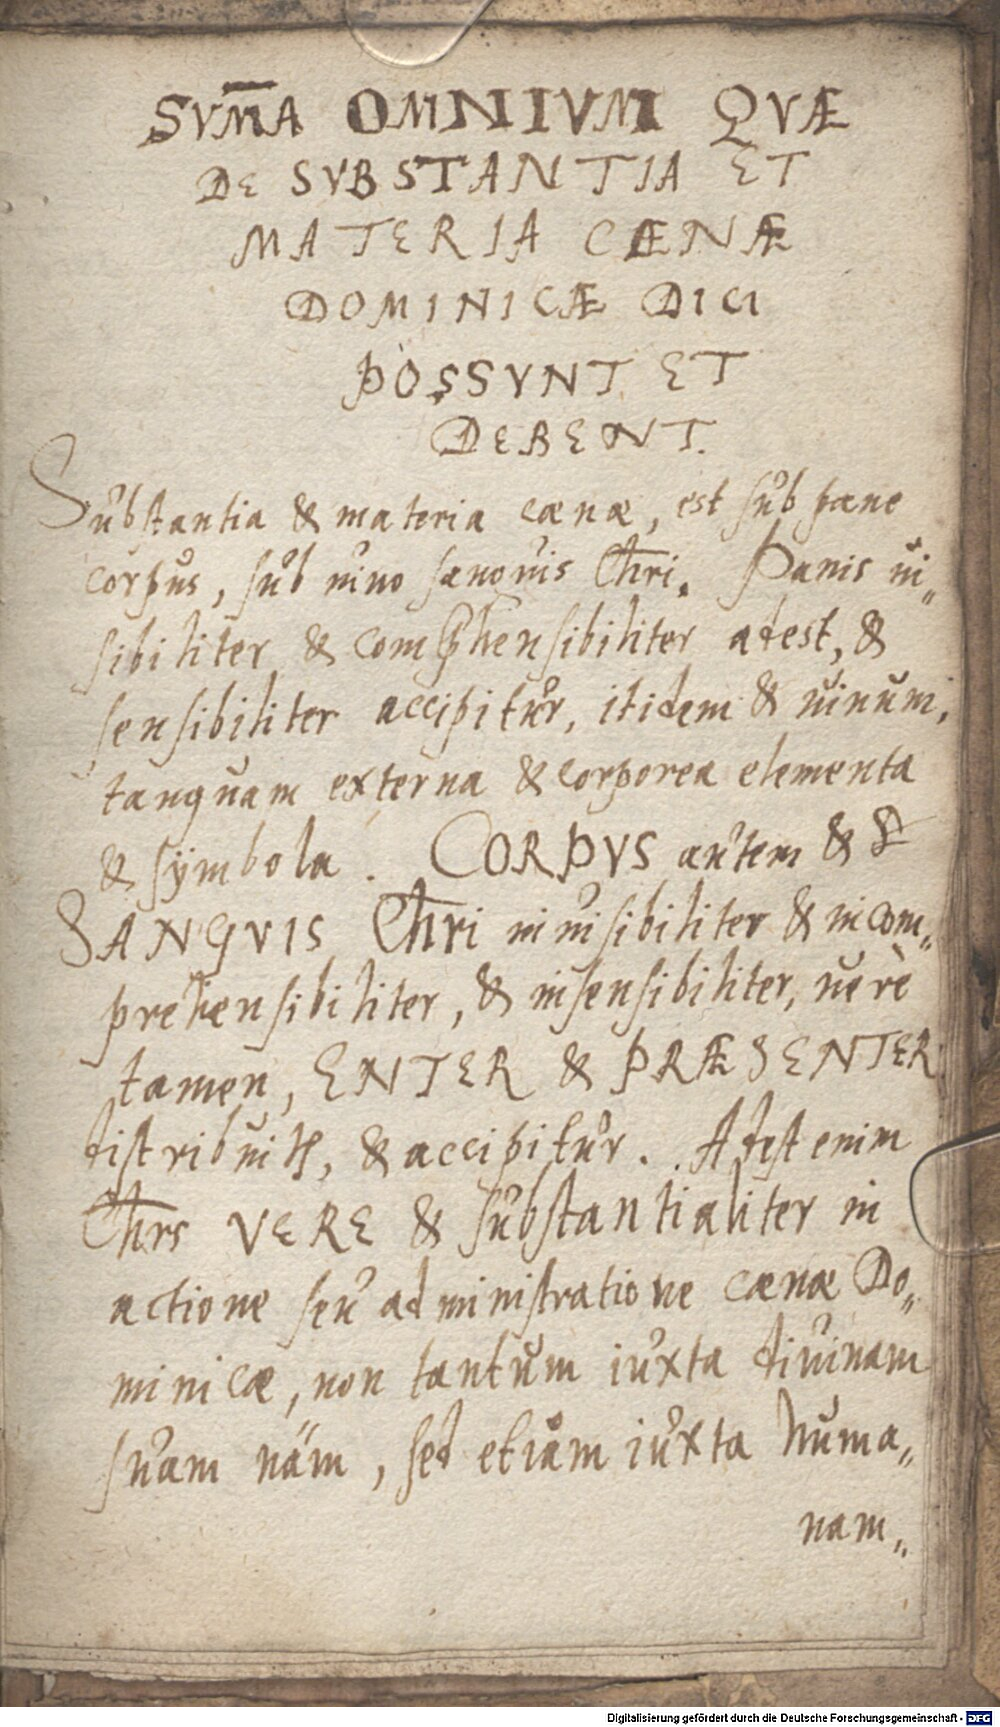 SVM̄A OMNIVM QVÆ
DE SVBSTANTIA ET
MATERIA CÆNÆ
DOMINICÆ DICI
POSSVNT ET
DEBENT.
Substantia & materia cænæ, est sub pane
corpus, sub uino sanguis Chri. Panis ui„
sibiliter & comphensibiliter adest, &
sensibiliter accipitur, itidem & uinum,
tanquam externa & corporea elementa
& sÿmbola. CORPVS autem &
SANGVIS Chri inuisibiliter & incom„
prehensibiliter, & insensibiliter, uerè
tamen, ENTER & PRÆSENTER
distribuitr, & accipitur. Adest enim
Chrs VERE & substantialiter in
actione seu administratione cænæ Do„
minicæ, non tantum iuxta diuinam
suam näm, sed etiam iuxta huma„
nam„
Digitalisierung gefördert durch die Deutsche Forschungsgemeinschaft - DFG